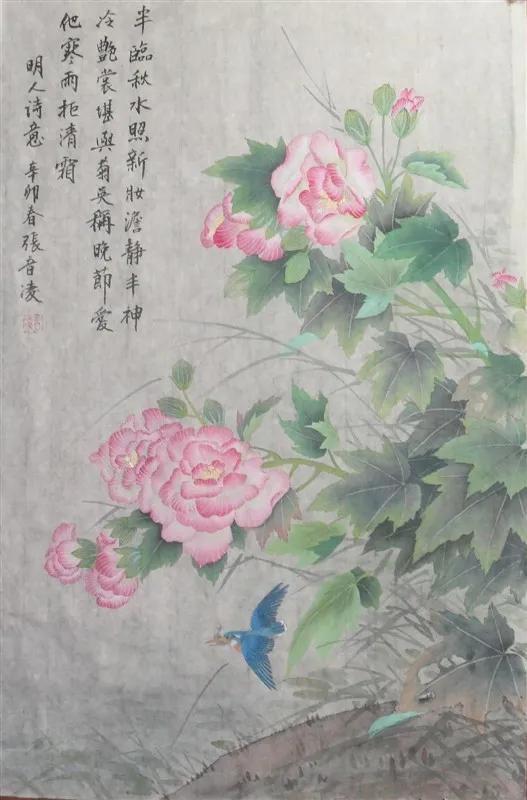 半臨秋水照新妝澹靜丰神
冷艷裳堪與菊英稱晚節愛
他寒雨拒清霜
明人诗意 辛卯春張音凌